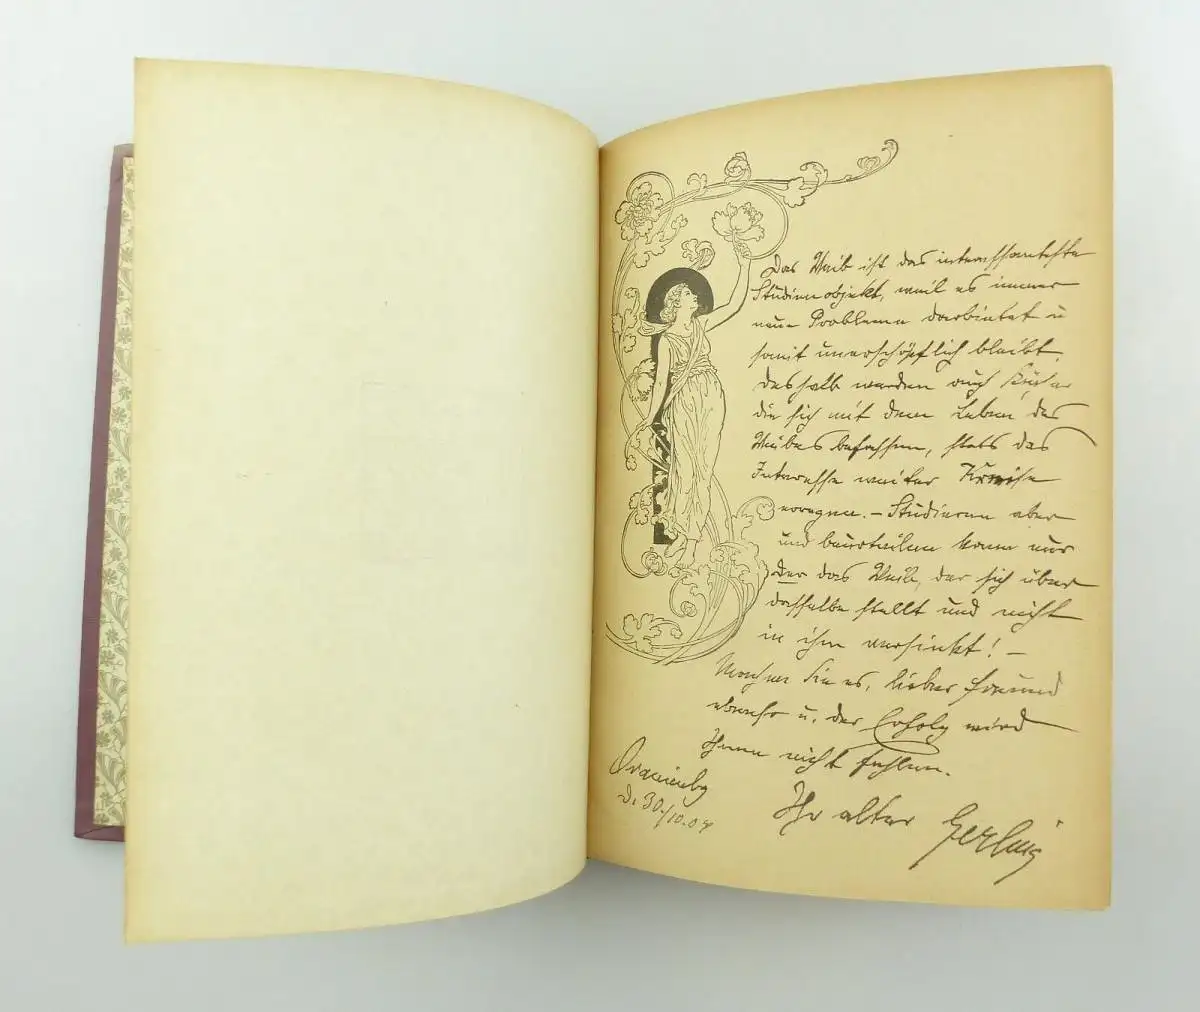 Das Weib ist das interessanteste
Studienobjekt, weil es immer
neue Probleme darbietet u
somit unerschöpflich bleibt.
Deshalb werden auch Bücher
die sich mit dem Leben des
Weibes befassen, stets das
Interesse weiter Kreise
erregen. – Studieren aber
und beurteilen kann nur
der das Weib, der sich über
dasselbe stellt und nicht
in ihm versinkt! –
Machen Sie es, lieber Freund
ebenso u. der Erfolg wird
Ihnen nicht fehlen.
Ihr alter Gerling
Oranienbg
d. 30./10.04